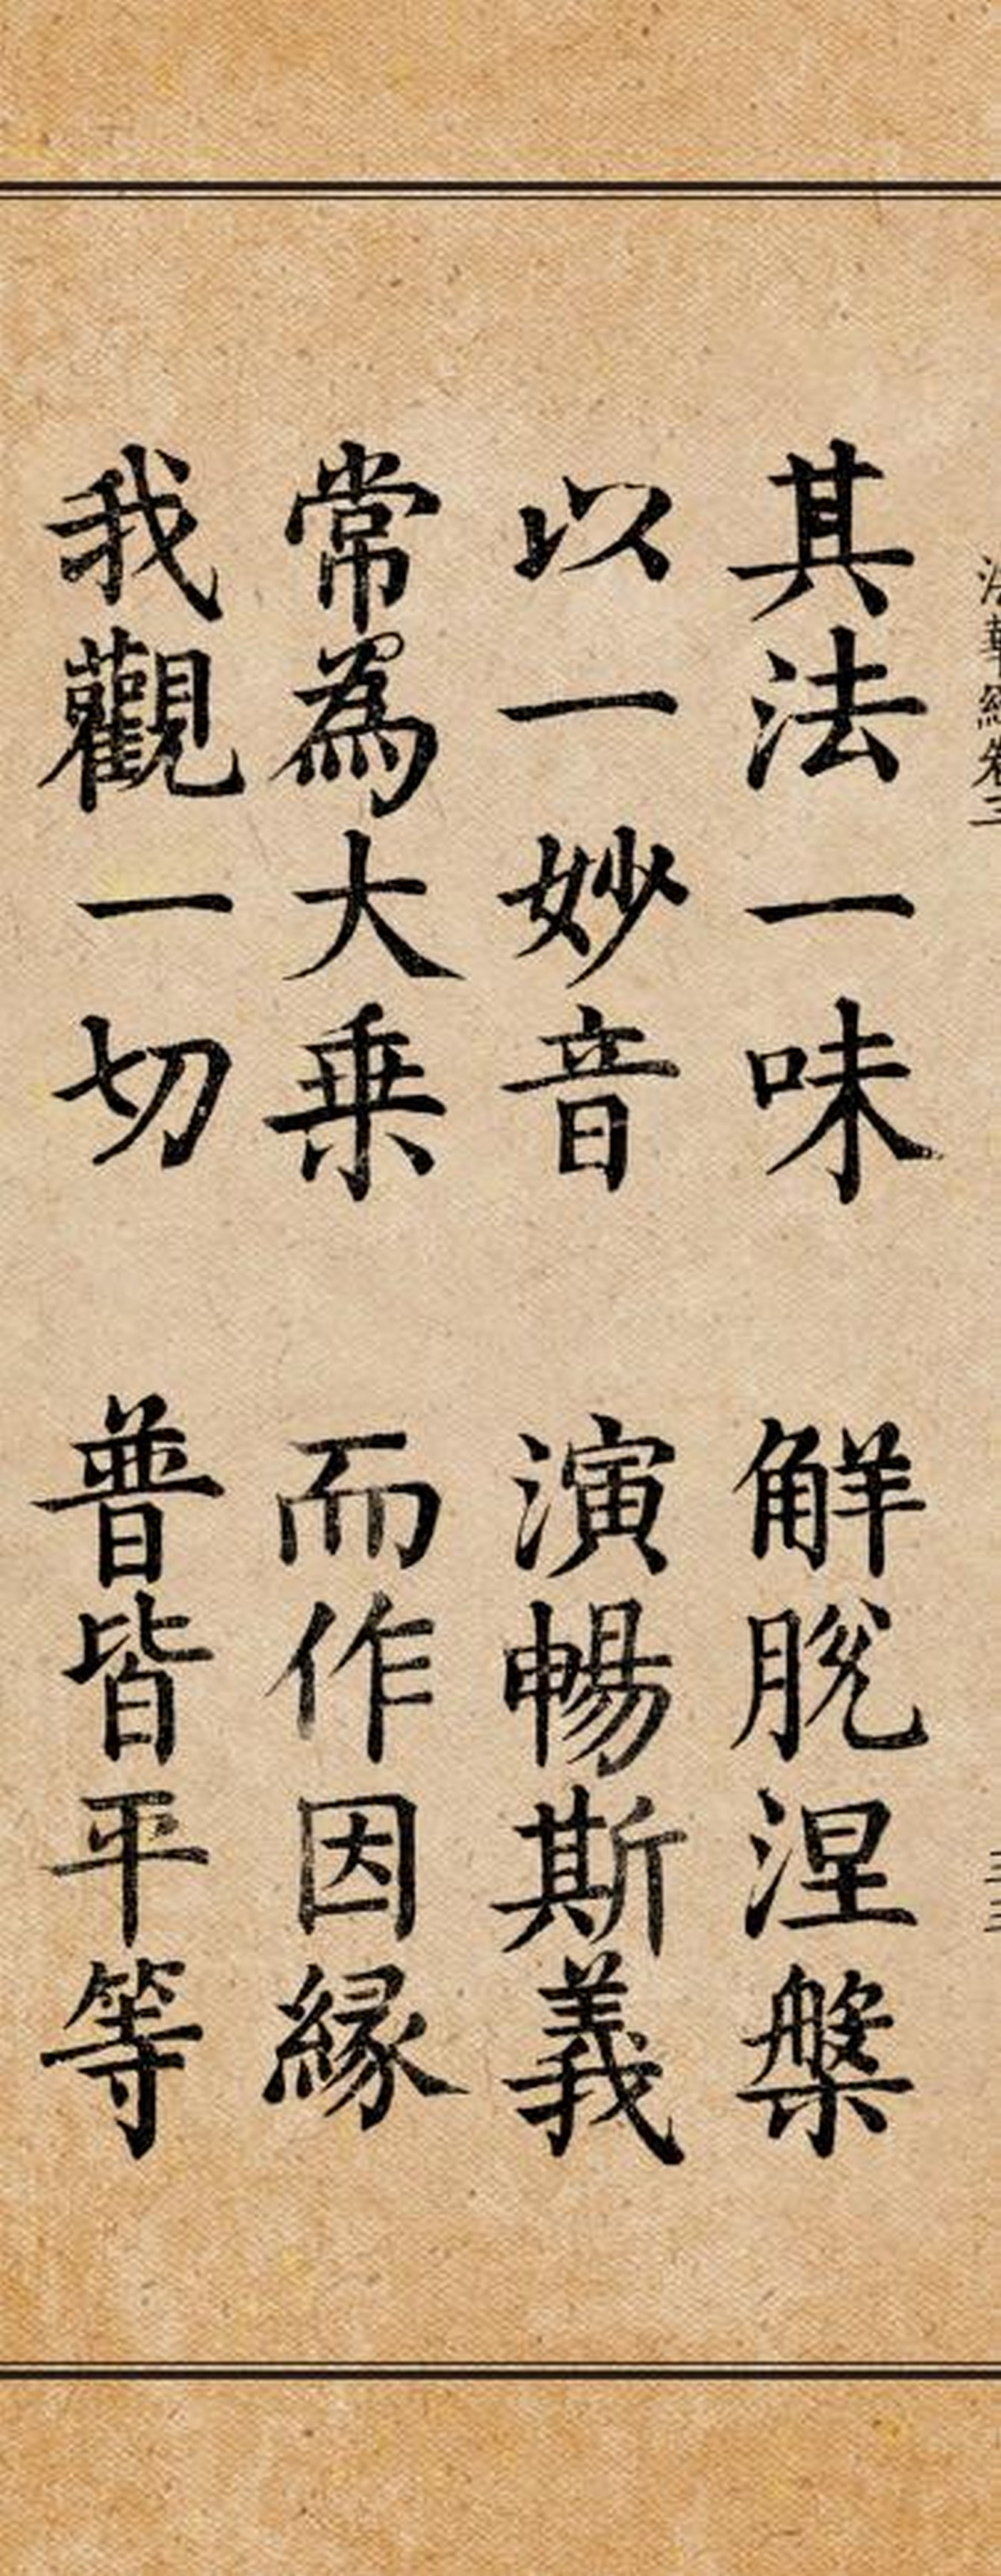 法華經卷三
其法一味 解脫涅槃
以一妙音 演暢斯義
常為大乗 而作因縁
我觀一切 普皆平等